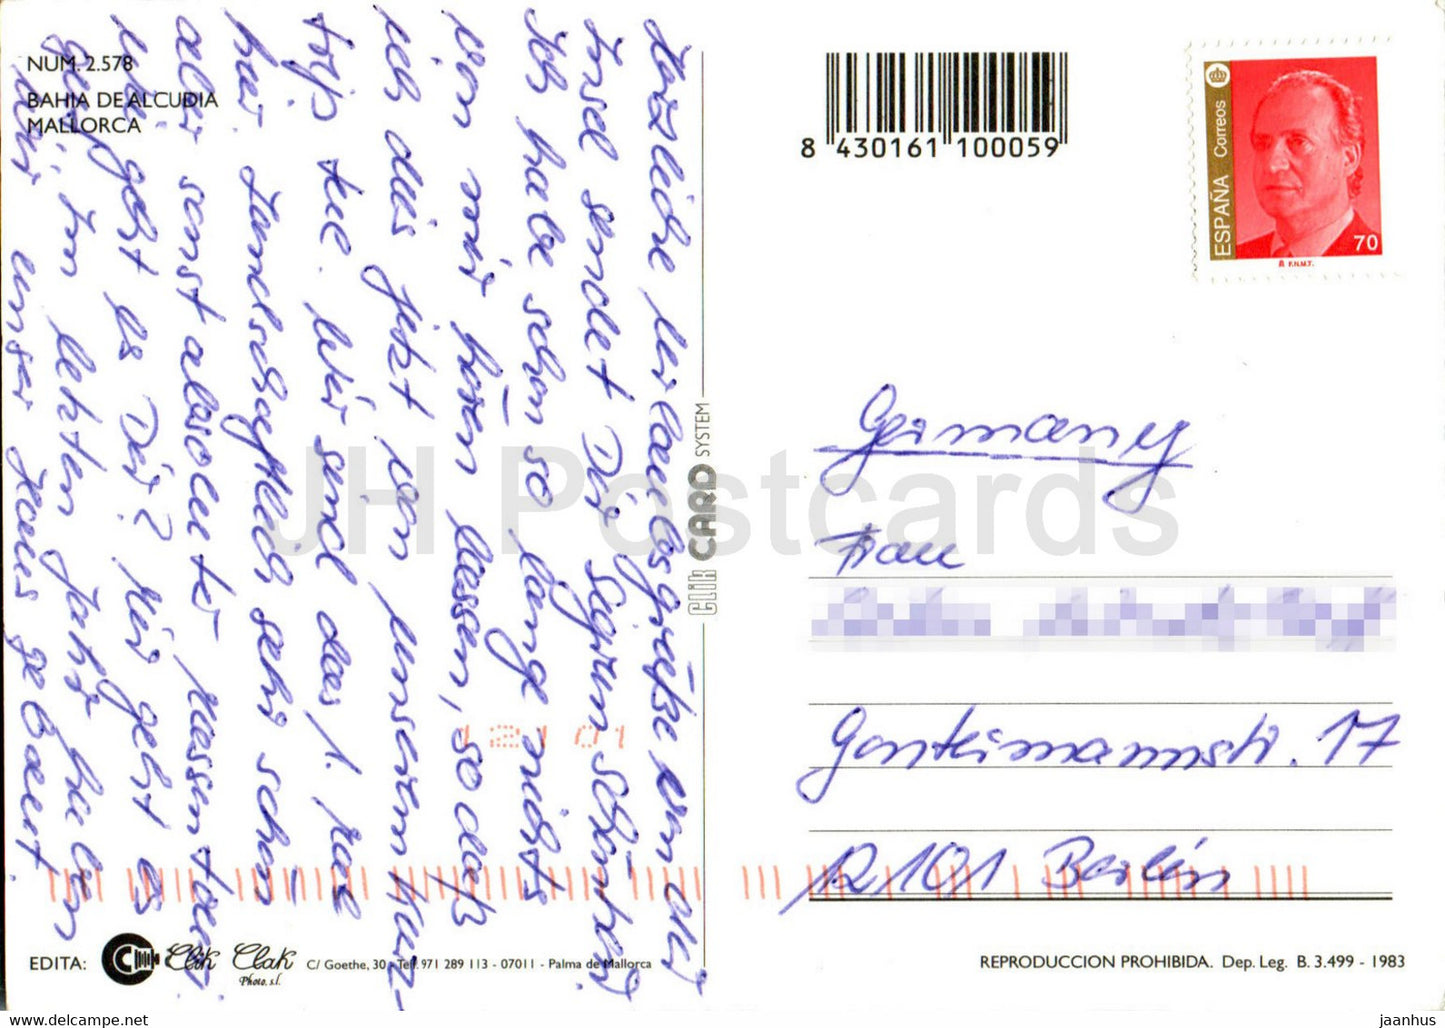 NUM. 2.578
BAHIA DE ALCUDIA
MALLORCA
Herzliche Urlaubsgrüße von der
Insel sendet Dir Sigrun
Ich habe schon so lange nichts
von mir hören lassen, so daß
ich dies jetzt von unserem Kurz-
trip tue. Wir sind das 1. Mal
hier. Landschaftlich sehr schön
aber sonst absoluter Massentour.
Wie geht es Dir? Mir geht es
gut. Im letzten Jahr haben
wir unser Haus gebaut.
CLIK CARD SYSTEM
8 430161 100059
ESPAÑA Correos
70
F.N.M.T.
Germany
Frau
Gontermannstr. 17
12101 Berlin
EDITA: Clik Clak Photo, s.l. C/ Goethe, 30 - Telf. 971 289 113 - 07011 - Palma de Mallorca
REPRODUCCION PROHIBIDA. Dep. Leg. B. 3.499 - 1983
JH Postcards
www.delcampe.net
jaanhus